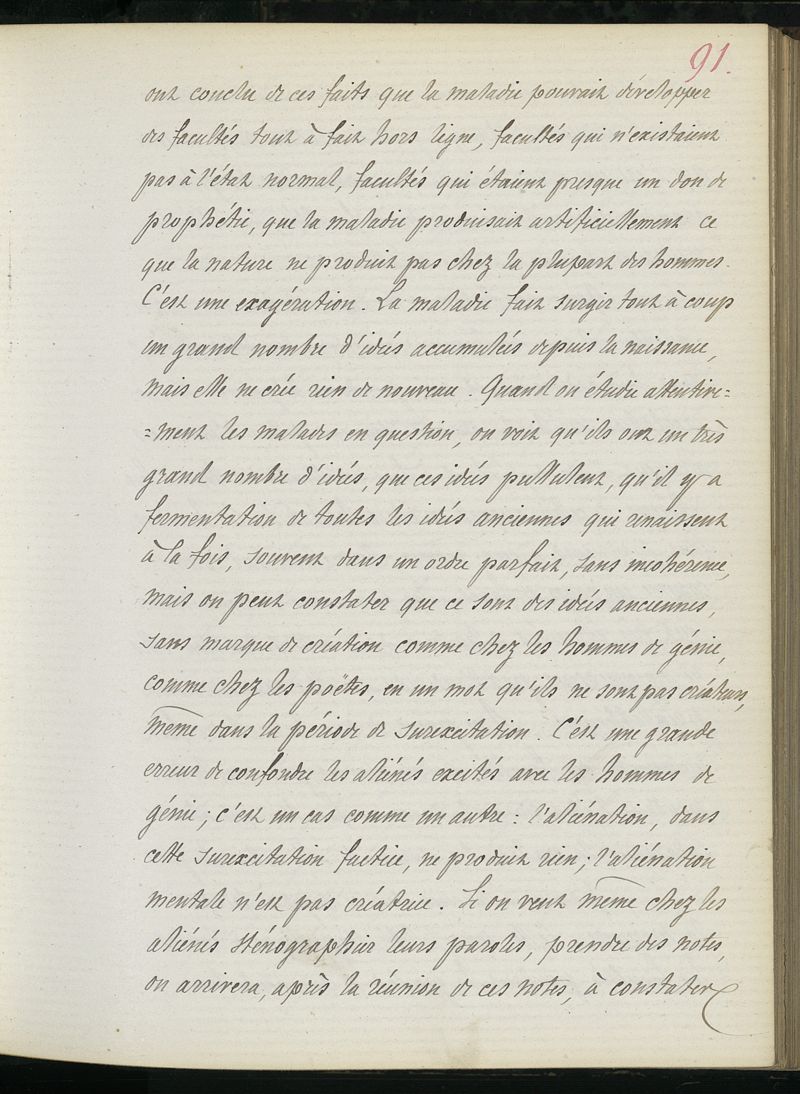 91.
ont conclu de ces faits que la maladie pouvait développer
des facultés tout à fait hors ligne, facultés qui n'existaient
pas à l'état normal, facultés qui étaient presque un don de
prophétie, que la maladie produisait artificiellement ce
que la nature ne produit pas chez la plupart des hommes.
C'est une exagération. La maladie fait surgir tout à coup
un grand nombre d'idées accumulées depuis la naissance,
mais elle ne crée rien de nouveau. Quand on étudie attentive=
=ment les malades en question, on voit qu'ils ont un très
grand nombre d'idées, que ces idées pullulent, qu'il y a
fermentation de toutes les idées anciennes qui renaissent
à la fois, souvent dans un ordre parfait, sans incohérence,
mais on peut constater que ce sont des idées anciennes,
sans marque de création comme chez les hommes de génie,
comme chez les poëtes, en un mot qu'ils ne sont pas créateurs,
même dans la période de surexcitation. C'est une grande
erreur de confondre les aliénés excités avec les hommes de
génie; c'est un cas comme un autre: l'aliénation, dans
cette surexcitation factice, ne produit rien; l'aliénation
mentale n'est pas créatrice. Si on veut même chez les
aliénés sténographier leurs paroles, prendre des notes,
on arrivera, après la réunion de ces notes, à constater